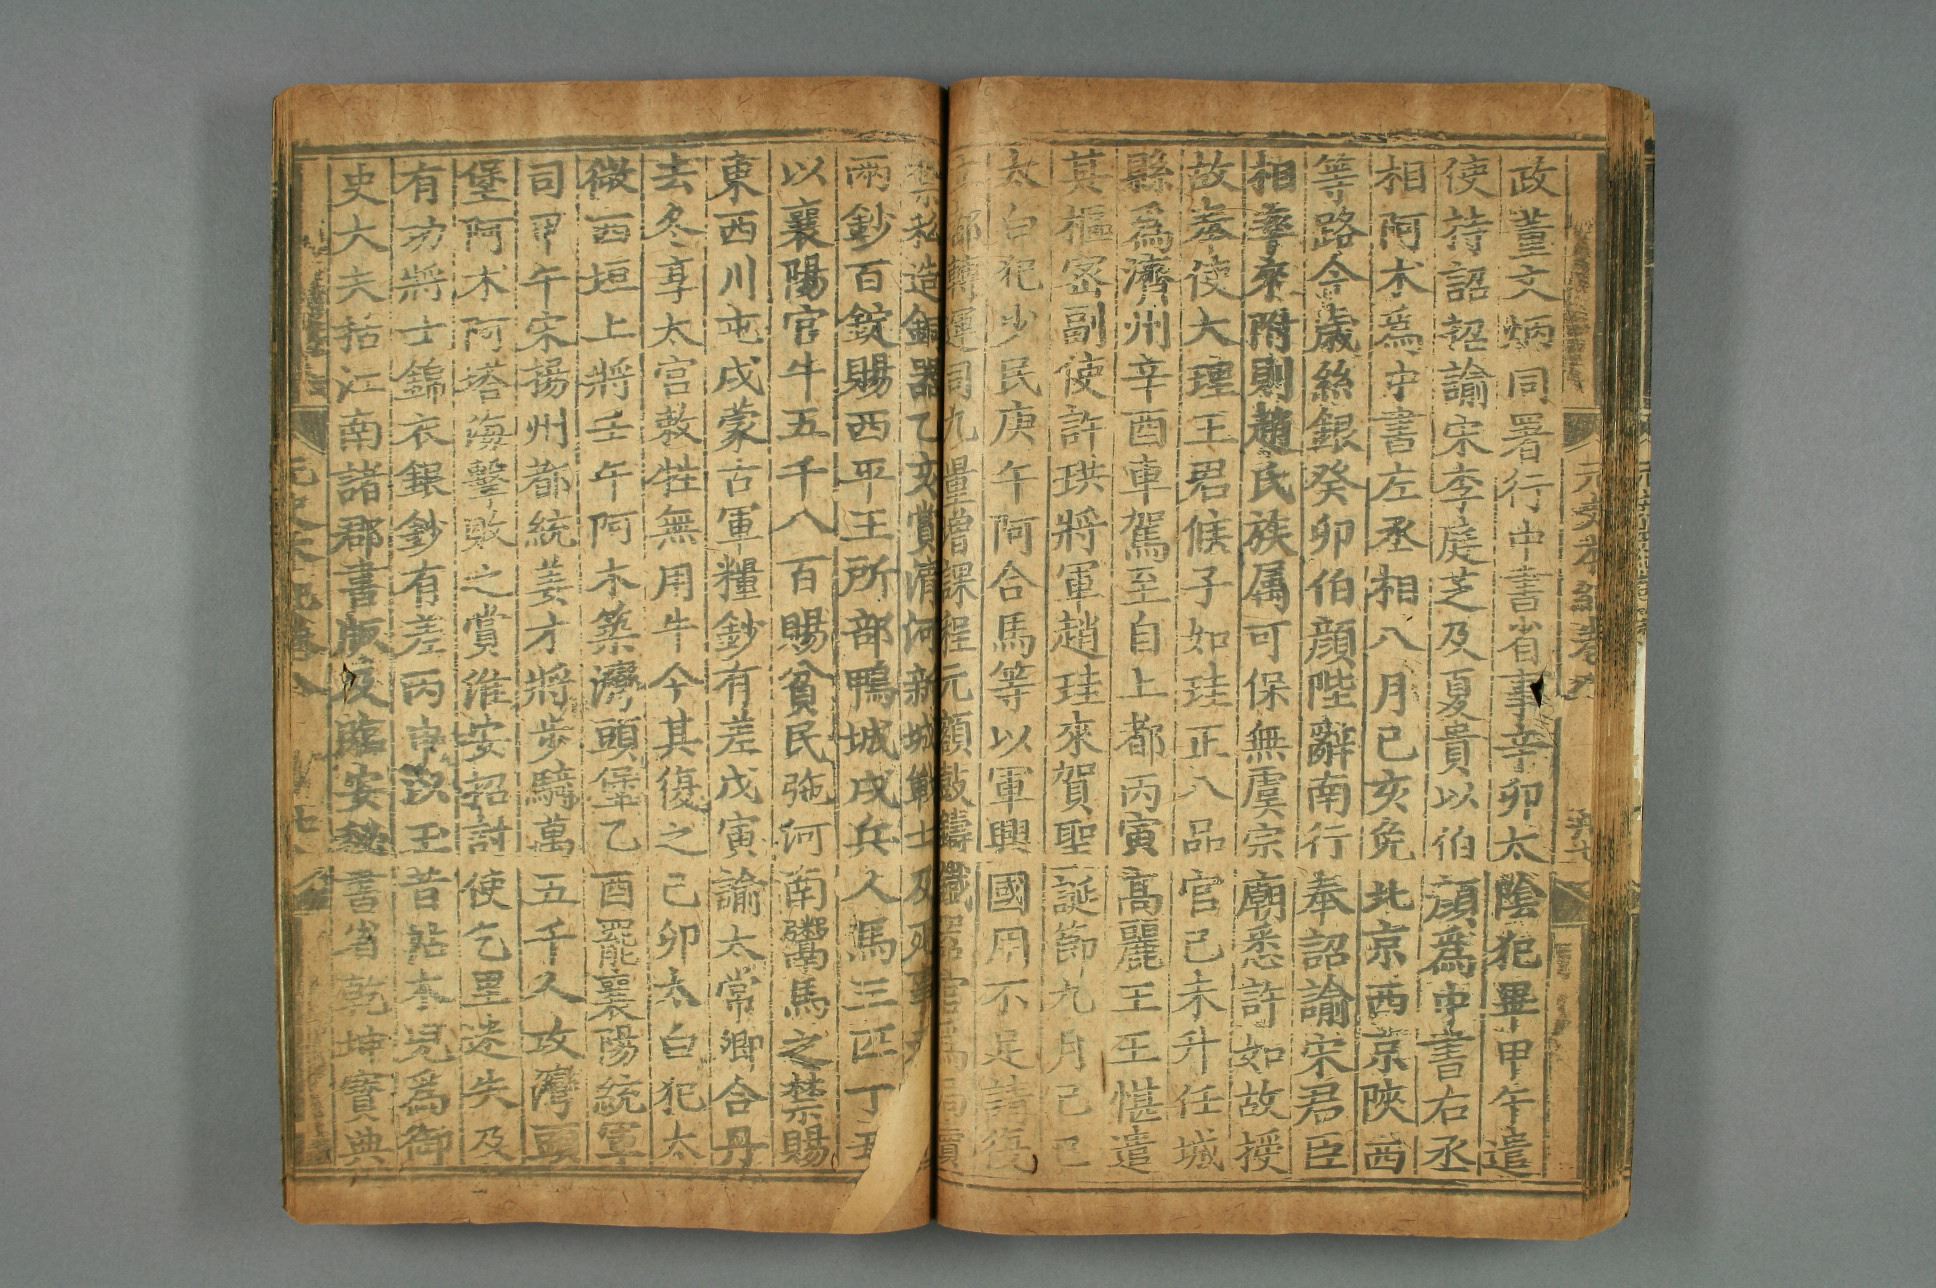 政董文炳同署行中書省事辛卯太陰犯畢甲午遣
使持詔詔諭宋李庭芝及夏貴以伯顔爲中書右丞
相阿木爲中書左丞相八月己亥免北京西京陝西
等路今歲絲銀癸卯伯顔陛辭南行奉詔諭宋君臣
相率來附則趙氏族属可保無虞宗廟悉許如故授
故奉使大理王君候子如珪正八品官己未升任城
縣爲濟州辛酉車駕至自上都丙寅高麗王王愖遣
其樞密副使許珙將軍趙珪來賀聖誕節九月己巳
太白犯少民庚午阿合馬等以軍興國用不足請復
立都轉運司九量增課程元額鼓鑄鐵器官爲局賣
禁私造銅器乙亥賞清河新城戰士及死事者
兩鈔百錠賜西平王所部鴨城戍兵人馬三匹丁丑
以襄陽官牛五千八百賜貧民弛河南鬻馬之禁賜
東西川屯戍蒙古軍糧鈔有差戊寅諭太常卿合丹
去冬享太宮敕牲無用牛今其復之己卯太白犯太
微西垣上將壬午阿木築灣頭堡乙酉罷襄陽統軍
司甲午宋揚州都統姜才將步騎萬五千人攻灣頭
堡阿木阿塔海擊敗之賞淮安招討使乞里迷失及
有功將士錦衣銀鈔有差丙申以玉昔帖木兒爲御
史大夫括江南諸郡書版及臨安秘書省乾坤寶典